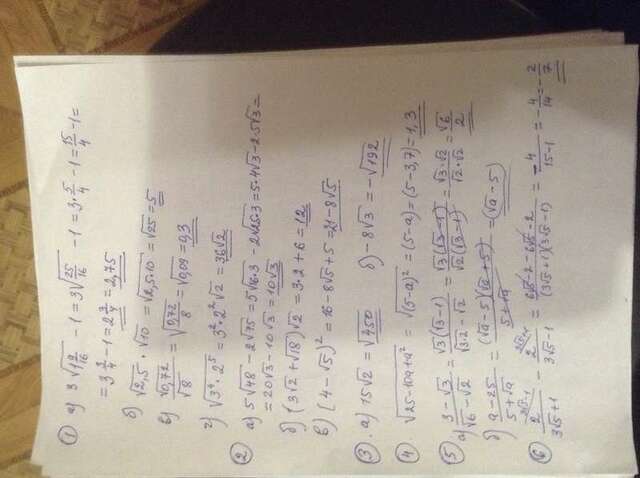 ① а) 3√(1 9/16) - 1 = 3√(25/16) - 1 = 3·5/4 - 1 = 15/4 - 1 =
= 3 3/4 - 1 = 2 3/4 = 2,75
б) √2,5 · √10 = √(2,5·10) = √25 = 5
в) √0,72/√8 = √(0,72/8) = √0,09 = 0,3
г) √(3⁴ · 2⁵) = 3²·2²√2 = 36√2
② а) 5√48 - 2√75 = 5√(16·3) - 2√(25·3) = 5·4√3 - 2·5√3 =
= 20√3 - 10√3 = 10√3
б) (3√2 + √18)√2 = 3·2 + 6 = 12
в) (4 - √5)² = 16 - 8√5 + 5 = 21 - 8√5
③ а) 15√2 = √450 б) -8√3 = -√192
④ √(25-10a+a²) = √(5-a)² = (5-a) = (5-3,7) = 1,3
⑤ а) (3-√3)/(√6-√2) = √3(√3-1)/(√3·2-√2) = √3(√3-1)/√2(√3-1) = √3·√2/√2·√2 = √6/2
б) (a-25)/(5+√a) = (√a-5)(√a+5)/(5+√a) = (√a-5)
⑥ 2/(3√5+1) - 2/(3√5-1) = (6√5-2-6√5-2)/(3√5+1)(3√5-1) = -4/(15-1) = -4/14 = -2/7